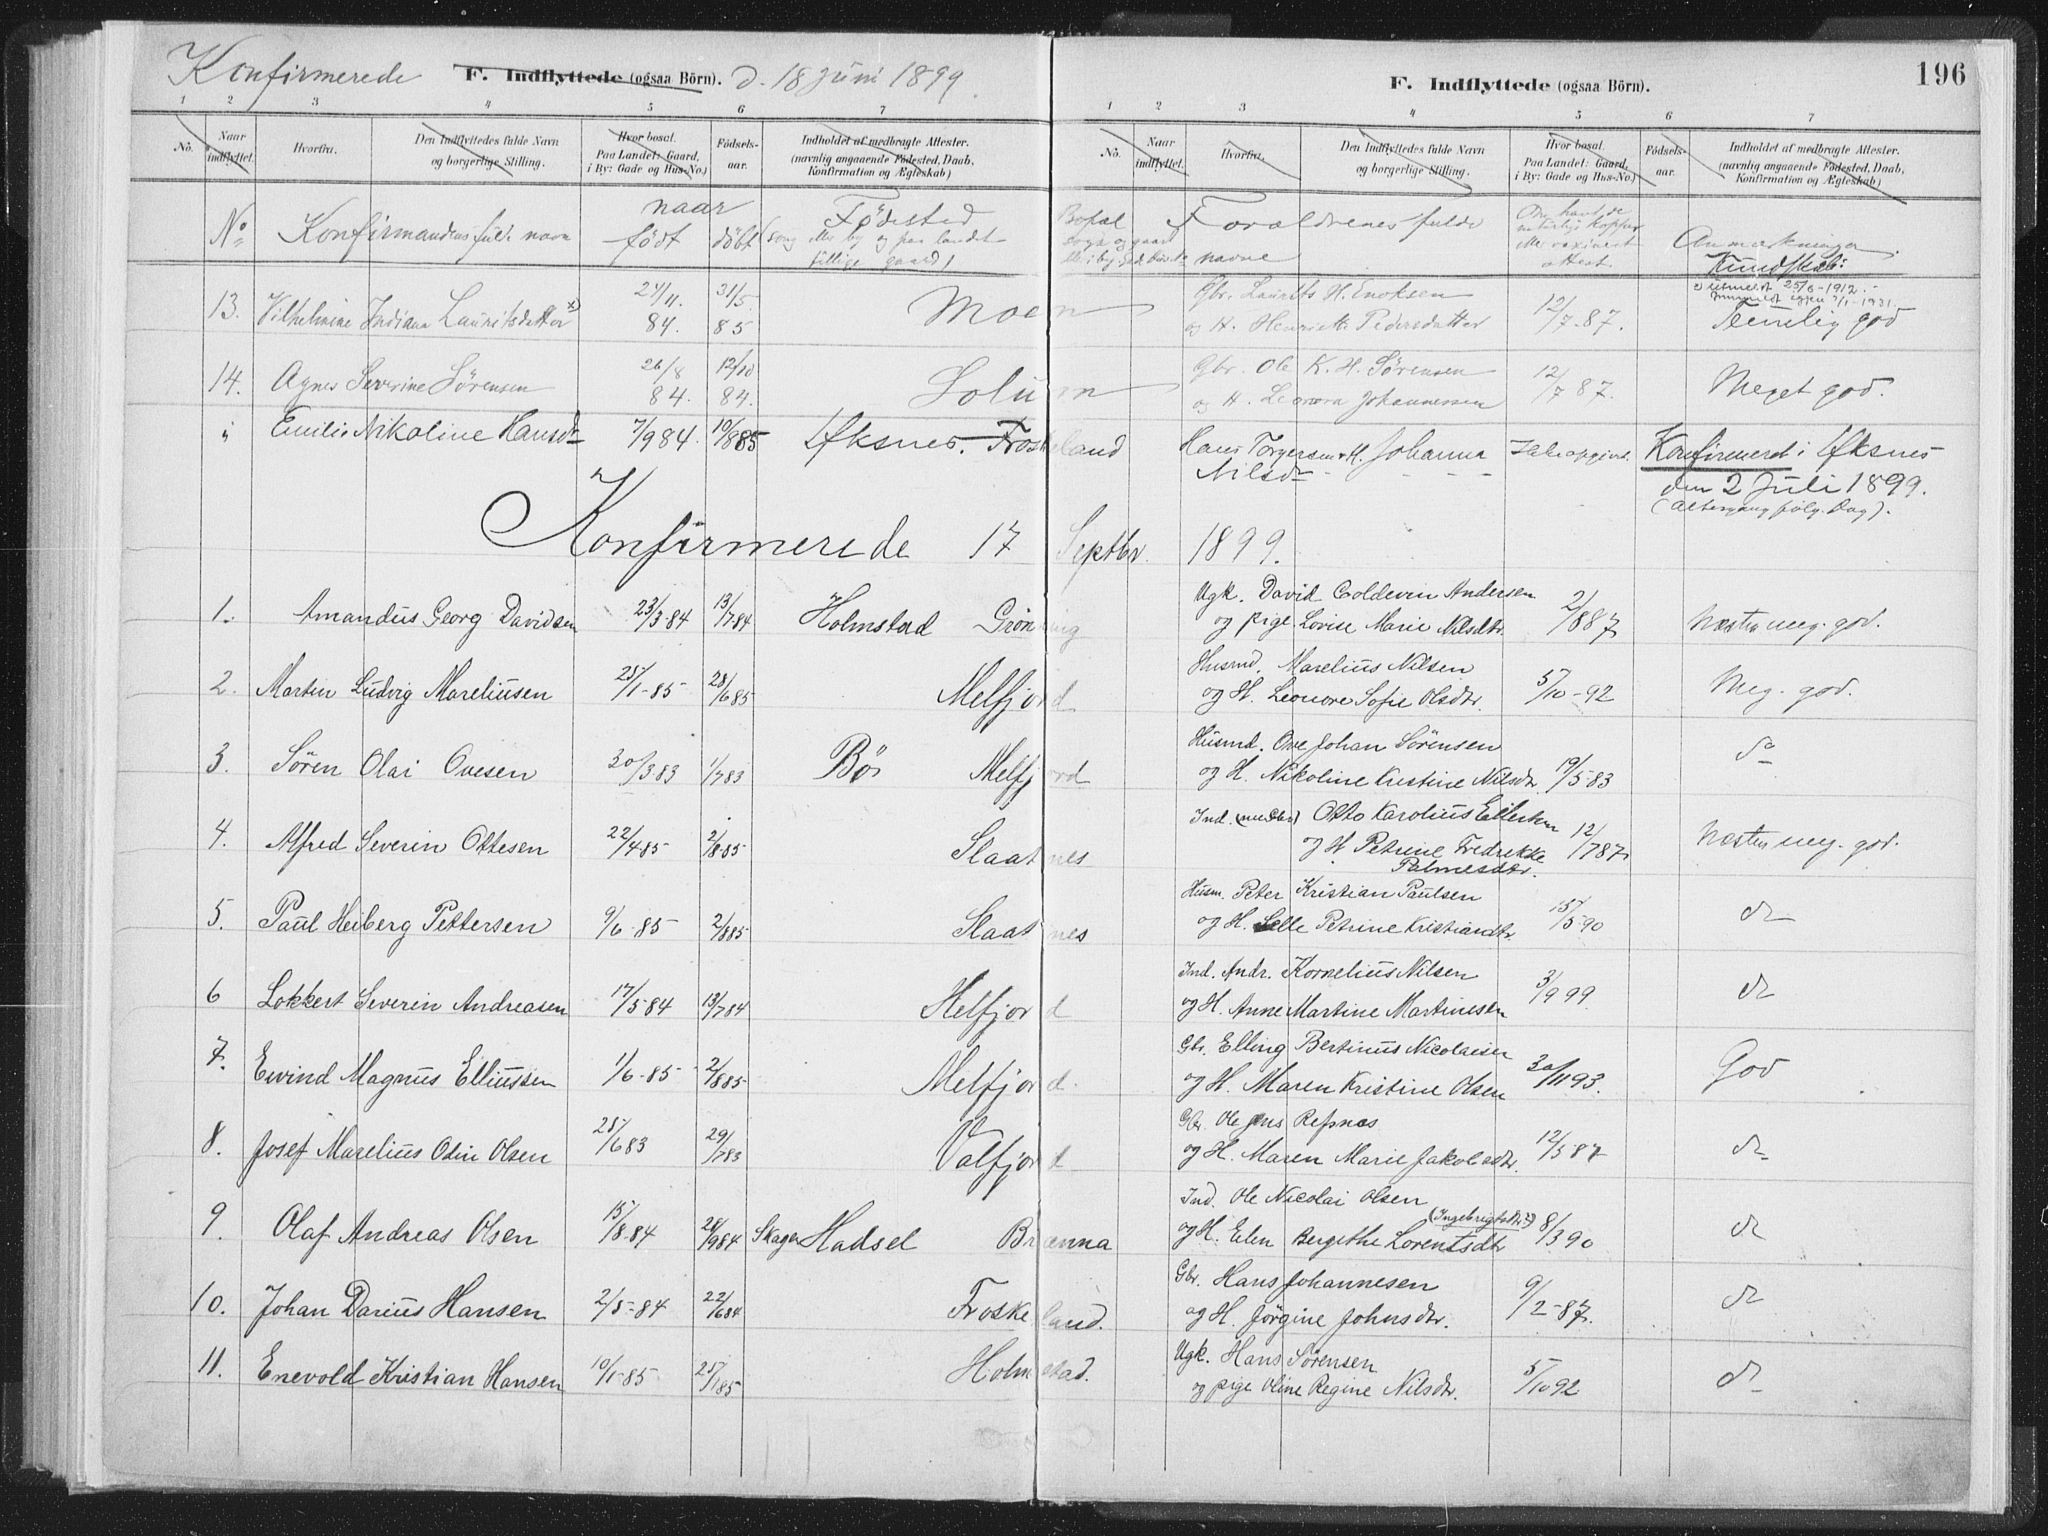 Konfirmerede F. Indflyttede (ogsaa Börn). d. 18 Juni 1899
F. Indflyttede (ogsaa Börn). 196
1 2 3 4 5 6 7
1 2 3 4 5 6 7
No. Naar indflyttet. Hvorfra. Den Indflyttedes fulde Navn og borgerlige Stilling. Hvor bosat. Paa Landet: Gaard, i By: Gade og Hus-No.) Födselsaar. Indholdet af medbragte Attester. (navnlig angaaende Födested, Daab, Konfirmation og Ægteskab)
No. Naar indflyttet. Hvorfra. Den Indflyttedes fulde Navn og borgerlige Stilling. Hvor bosat. Paa Landet: Gaard, i By: Gade og Hus-No.) Födselsaar. Indholdet af medbragte Attester. (navnlig angaaende Födested, Daab, Konfirmation og Ægteskab)
No Konfirmandens fulde navn naar født døbt Fødested (sogn eller by og paa landet tillige gaard) Bopæl Forældrenes fulde navne Anmærkninger Kundskab:
udmeldt 25/6-1912.
Indmeldt igjen 7/1-1931.
13. Vilhelmine Indiana Lauritsdatter x) 24/11. 84. 31/5 85 Moen Gbr. Laurits H. Enoksen og H. Henriette Pedersdatter 12/7-87. Temmelig god
14. Agnes Severine Sørensen 26/8 84. 12/10 84. Solum Gbr. Ole K. H. Sørensen og H. Leonora Johannessen 12/7 87. Meget god.
" Emilie Nikoline Hansdr 7/9 84 10/8 85 Øksnes. Froskeland Hans Torgersen & H. Johanna Nilsdr Ikke opgivet. Konfirmeret i Øksnes den 2 Juli 1899. (Altergang følg. Dag).
Konfirmerede 17 Septbr. 1899.
1. Amandus Georg Davidsen 23/3 84 13/7 84 Holmstad Grønning Ugk. David Coldevin Andersen og pige Lovise Marie Nilsdtr. 2/8 87 Næsten meg. god.
2. Martin Ludvig Mareliussen 25/1-85 28/6 85 Melfjord Husmd. Marelius Nilsen og H. Leonore Sofie Olsdtr. 5/10-92 Meg. god.
3. Søren Olai Ovesen 30/3 83 1/7 83 Bø Melfjord Husmd. Ove Johan Sørensen og H. Nikoline Kristine Nilsdtr. 19/5-83 do
4. Alfred Severin Ottesen 22/4-85 2/8 85 Slaatnes Ind. Otto Karolius Ellertsen og H. Petrine Fredrikke Palmesdtr. 12/7 87 Næsten meg. god.
5. Paul Heiberg Pettersen 9/6-85 2/8 85 Slaatnes Husm. Peter Kristian Paulsen og H. Lelle Petrine Kristiansdtr. 15/5-90 do
6 Lokkert Severin Andreasen 17/5-84 13/7 84 Melfjord Ind. Andr. Kornelius Nilsen og H. Anne Martine Martinesen 3/9 99 do
7. Eivind Magnus Elliussen 1/6-85 2/8 85 Melfjord. Gbr. Elling Bertinus Nicolaisen og H. Maren Kristine Olsen 30/11 93. God
8. Josef Marelius Odin Olsen 25/6 83 29/7 83 Valfjord Gbr. Ole Jens Refsnæs og H. Maren Marie Jakobsdtr. 12/5 87 do
9. Olaf Andreas Olsen 15/8-84 28/9 84 Skagen Hadsel Brænna Ind. Ole Nicolai Olsen og H. Elen Bergithe Lorentsdtr (Ingebrigtsdtr?) 8/3 90 do
10. Johan Darius Hansen 2/5-84 22/6 84 Froskeland. Gbr. Hans Johannesen og H. Jørgine Johnsdtr. 9/2-87. do
11. Enevold Kristian Hansen 10/1-85 25/1 85 Holmstad. Ugk. Hans Sørensen og pige Oline Regine Nilsdtr. 5/10 92 do